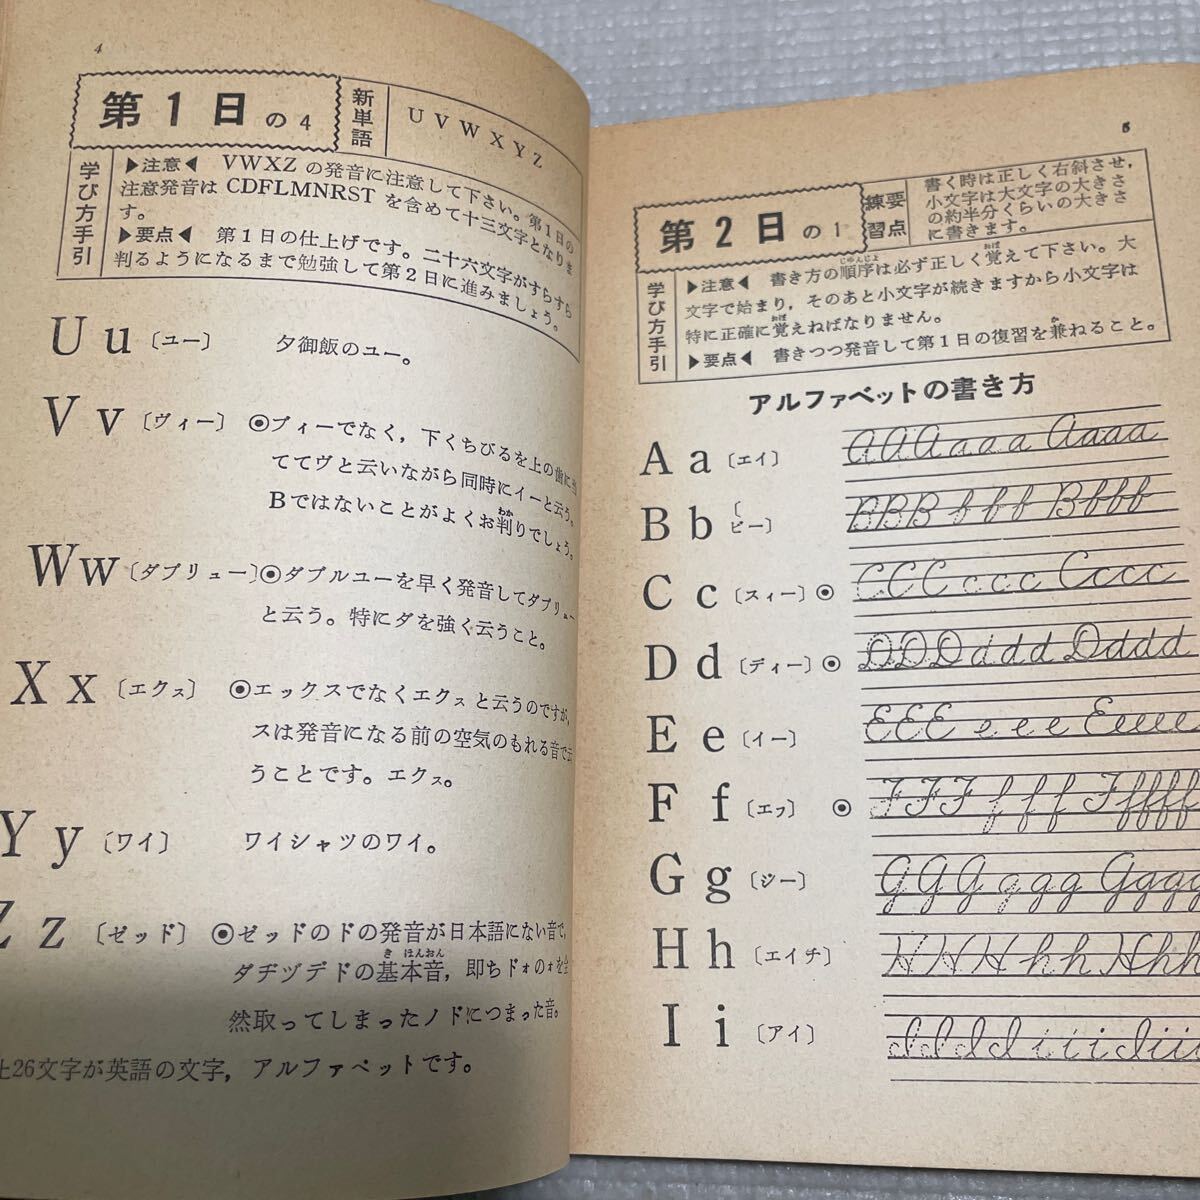 4
第1日の4
新単語
U V W X Y Z
学び方手引
▶注意◀ VWXZ の発音に注意して下さい。第1日の
注意発音は CDFLMNRST を含めて十三文字となりま
す。
▶要点◀ 第1日の仕上げです。二十六文字がすらすら
判るようになるまで勉強して第2日に進みましょう。
U u 〔ユー〕 夕御飯のユー。
V v 〔ヴィー〕 ◉ブィーでなく，下くちびるを上の歯に当
ててヴと云いながら同時にイーと云う。
Bではないことがよくお判りでしょう。
わか
W w 〔ダブリュー〕◉ダブルユーを早く発音してダブリュー
と云う。特にダを強く云うこと。
X x 〔エクス〕 ◉エックスでなくエクスと云うのですが，
スは発音になる前の空気のもれる音で云
うことです。エクス。
Y y 〔ワイ〕 ワイシャツのワイ。
Z z 〔ゼッド〕 ◉ゼッドのドの発音が日本語にない音で，
ダヂヅデドの基本音，即ちドォのォを全
き ほんおん
然取ってしまったノドにつまった音。
上26文字が英語の文字，アルファベットです。
5
第2日の1
練習要点
書く時は正しく右斜させ，
小文字は大文字の大きさ
の約半分くらいの大きさ
に書きます。
学び方手引
▶注意◀ 書き方の順序は必ず正しく覚えて下さい。大
じゅんじょ
おぼ
文字で始まり，そのあと小文字が続きますから小文字は
特に正確に覚えねばなりません。
おぼ
▶要点◀ 書きつつ発音して第1日の復習を兼ねること。
か
アルファベットの書き方
A a 〔エイ〕 A A A a a a Aaaa
B b 〔ビー〕 B B B b b b Bbbb
C c 〔スィー〕◉ C C C c c c Cccc
D d 〔ディー〕◉ D D D d d d Dddd
E e 〔イー〕 E E E e e e Eeeee
F f 〔エフ〕 ◉ F F F f f f Fffff
G g 〔ジー〕 G G G g g g Gggg
H h 〔エイチ〕 H H H h h Hhh
I i 〔アイ〕 I I I I i i i Iiii